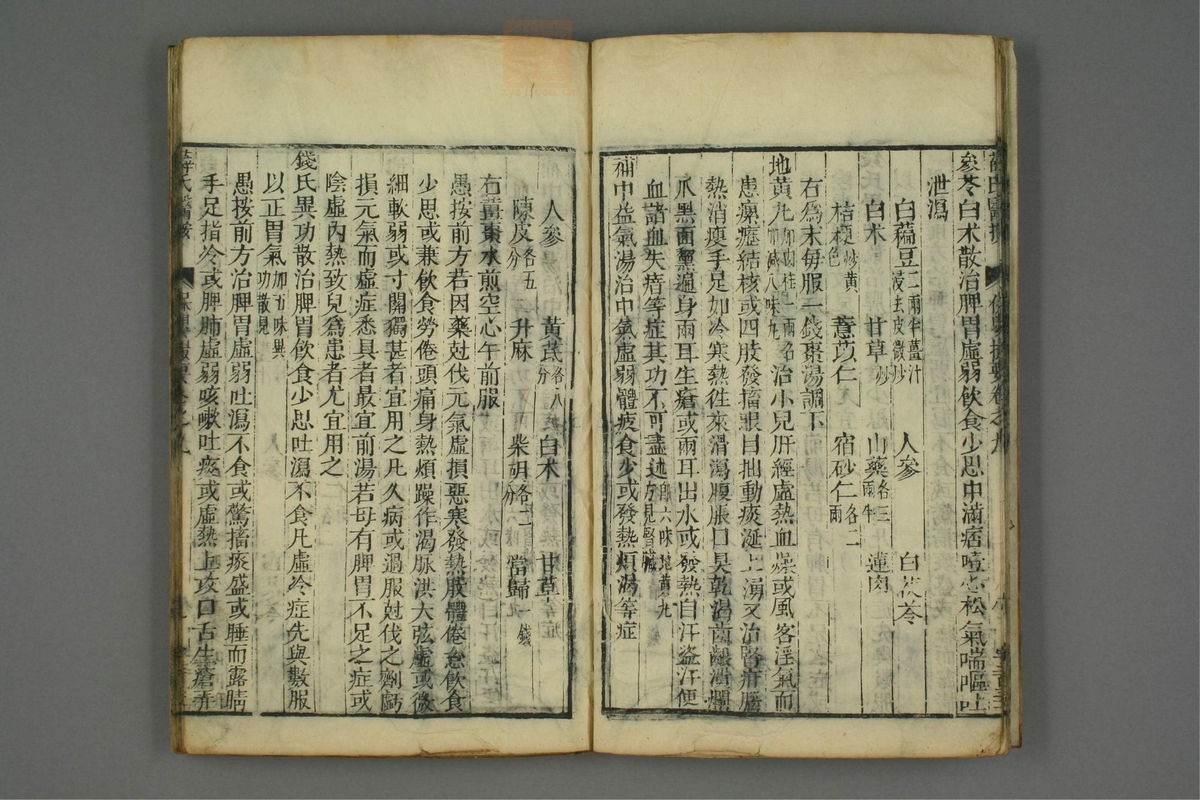 參苓白术散治脾胃虛弱飲食少思中滿痞噎心忪氣喘嘔吐
泄瀉
白藊豆二兩半薑汁浸去皮微炒 人參 白茯苓
白术 甘草炒 山藥各三兩半 蓮肉
桔梗炒黃色 薏苡仁 宿砂仁各二兩
右爲末每服一錢棗湯調下
地黃丸 治小兒肝經虛熱血燥或風客淫氣而
患瘰癧結核或四肢發搐眼目抽動痰涎上湧又治腎疳腦
熱消瘦手足如冷寒熱徃來滑瀉腹脹口臭乾渴齒齦潰爛
爪黑面黧遍身兩耳生瘡或兩耳出水或發熱自汗盜汗便
血諸血失瘖等症其功不可盡述卽六味地黃丸方見腎臟
補中益氣湯治中氣虛弱體疲食少或發熱煩渴等症
人參 黃芪各八分 白术 甘草
陳皮各五分 升麻 柴胡各二分 當歸一錢
右薑棗水煎空心午前服
愚按前方若因藥尅伐元氣虛損惡寒發熱肢體倦怠飲食
少思或兼飲食勞倦頭痛身熱煩躁作渴脉洪大弦虛或微
細軟弱或寸關獨甚者宜用之凡久病或過服尅伐之劑虧
損元氣而虛症悉具者最宜前湯若母有脾胃不足之症或
陰虛內熱致兒爲患者尤宜用之
錢氏異功散治脾胃飲食少思吐瀉不食凡虛冷症先與數服
以正胃氣加五味異功散見
愚按前方治脾胃虛弱吐瀉不食或驚搐痰盛或睡而露睛
手足指冷或脾肺虛弱咳嗽吐痰或虛熱上攻口舌生瘡弄